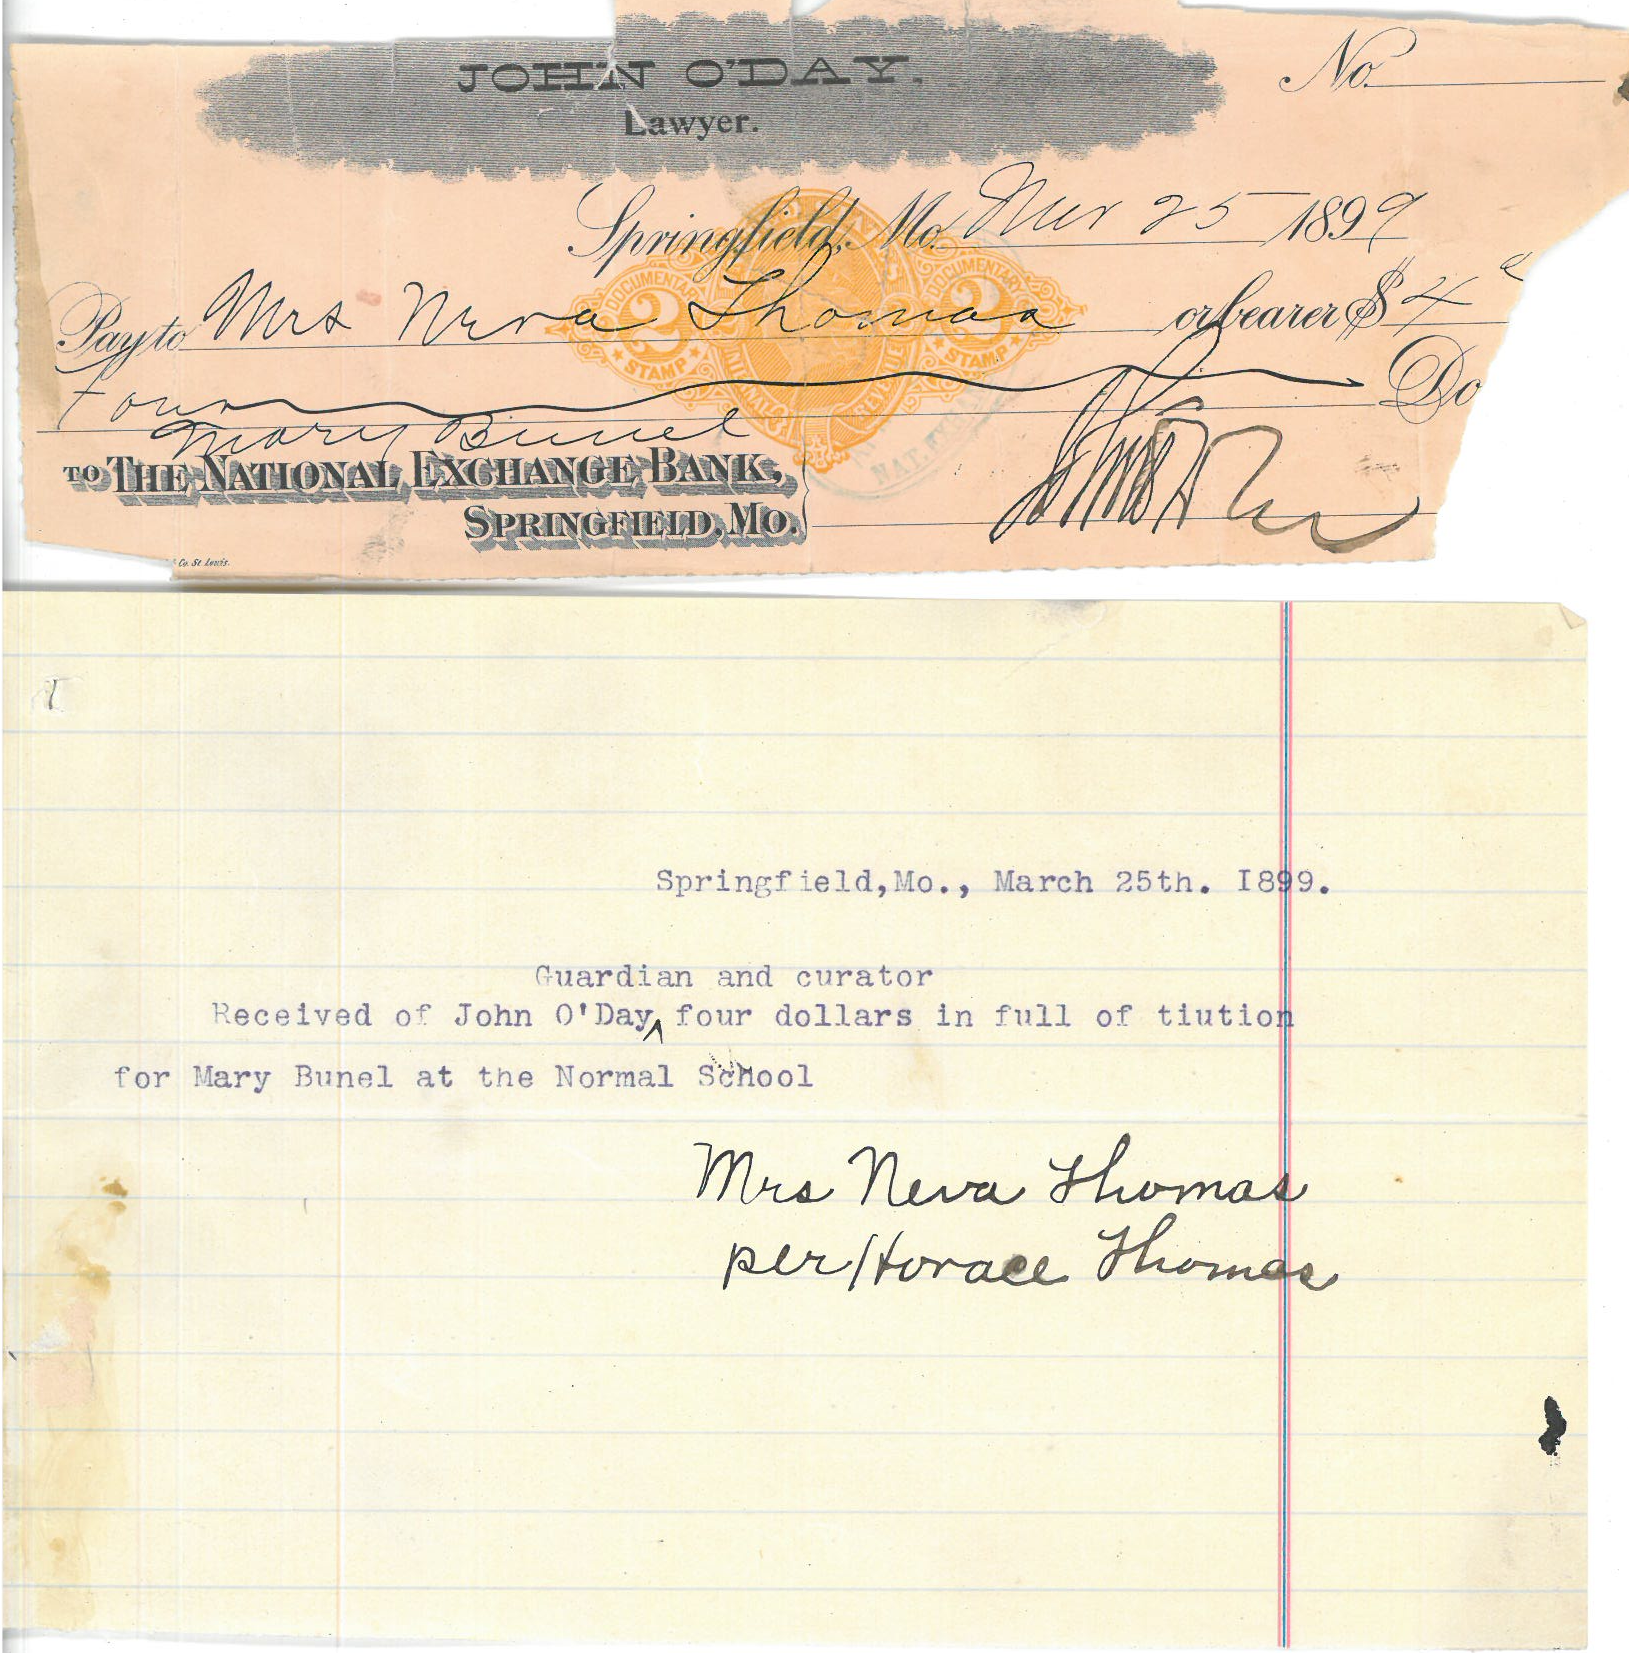 JOHN O'DAY.
Lawyer.
No.
Springfield, Mo. Mar 25 1899
Pay to Mrs Neva Thomas or bearer $ 4
DOCUMENTARY 2 STAMP DOCUMENTARY 2 STAMP
INTERNAL REVENUE
Four Do
Mary Bunel
TO THE NATIONAL EXCHANGE BANK,
SPRINGFIELD, MO.
NAT.
& Co. St. Louis.
Springfield,Mo., March 25th. I899.
Guardian and curator
Received of John O'Day^ four dollars in full of tiution
for Mary Bunel at the Normal School
Mrs Neva Thomas
per Horace Thomas